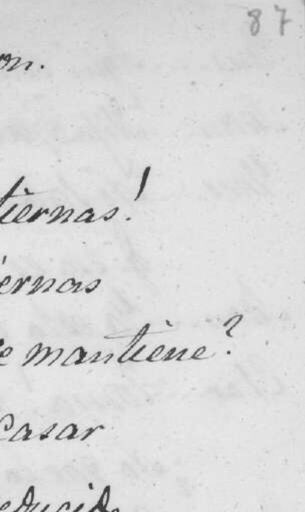 87
on.
tiernas!
ernas
e mantiene?
casar
educid